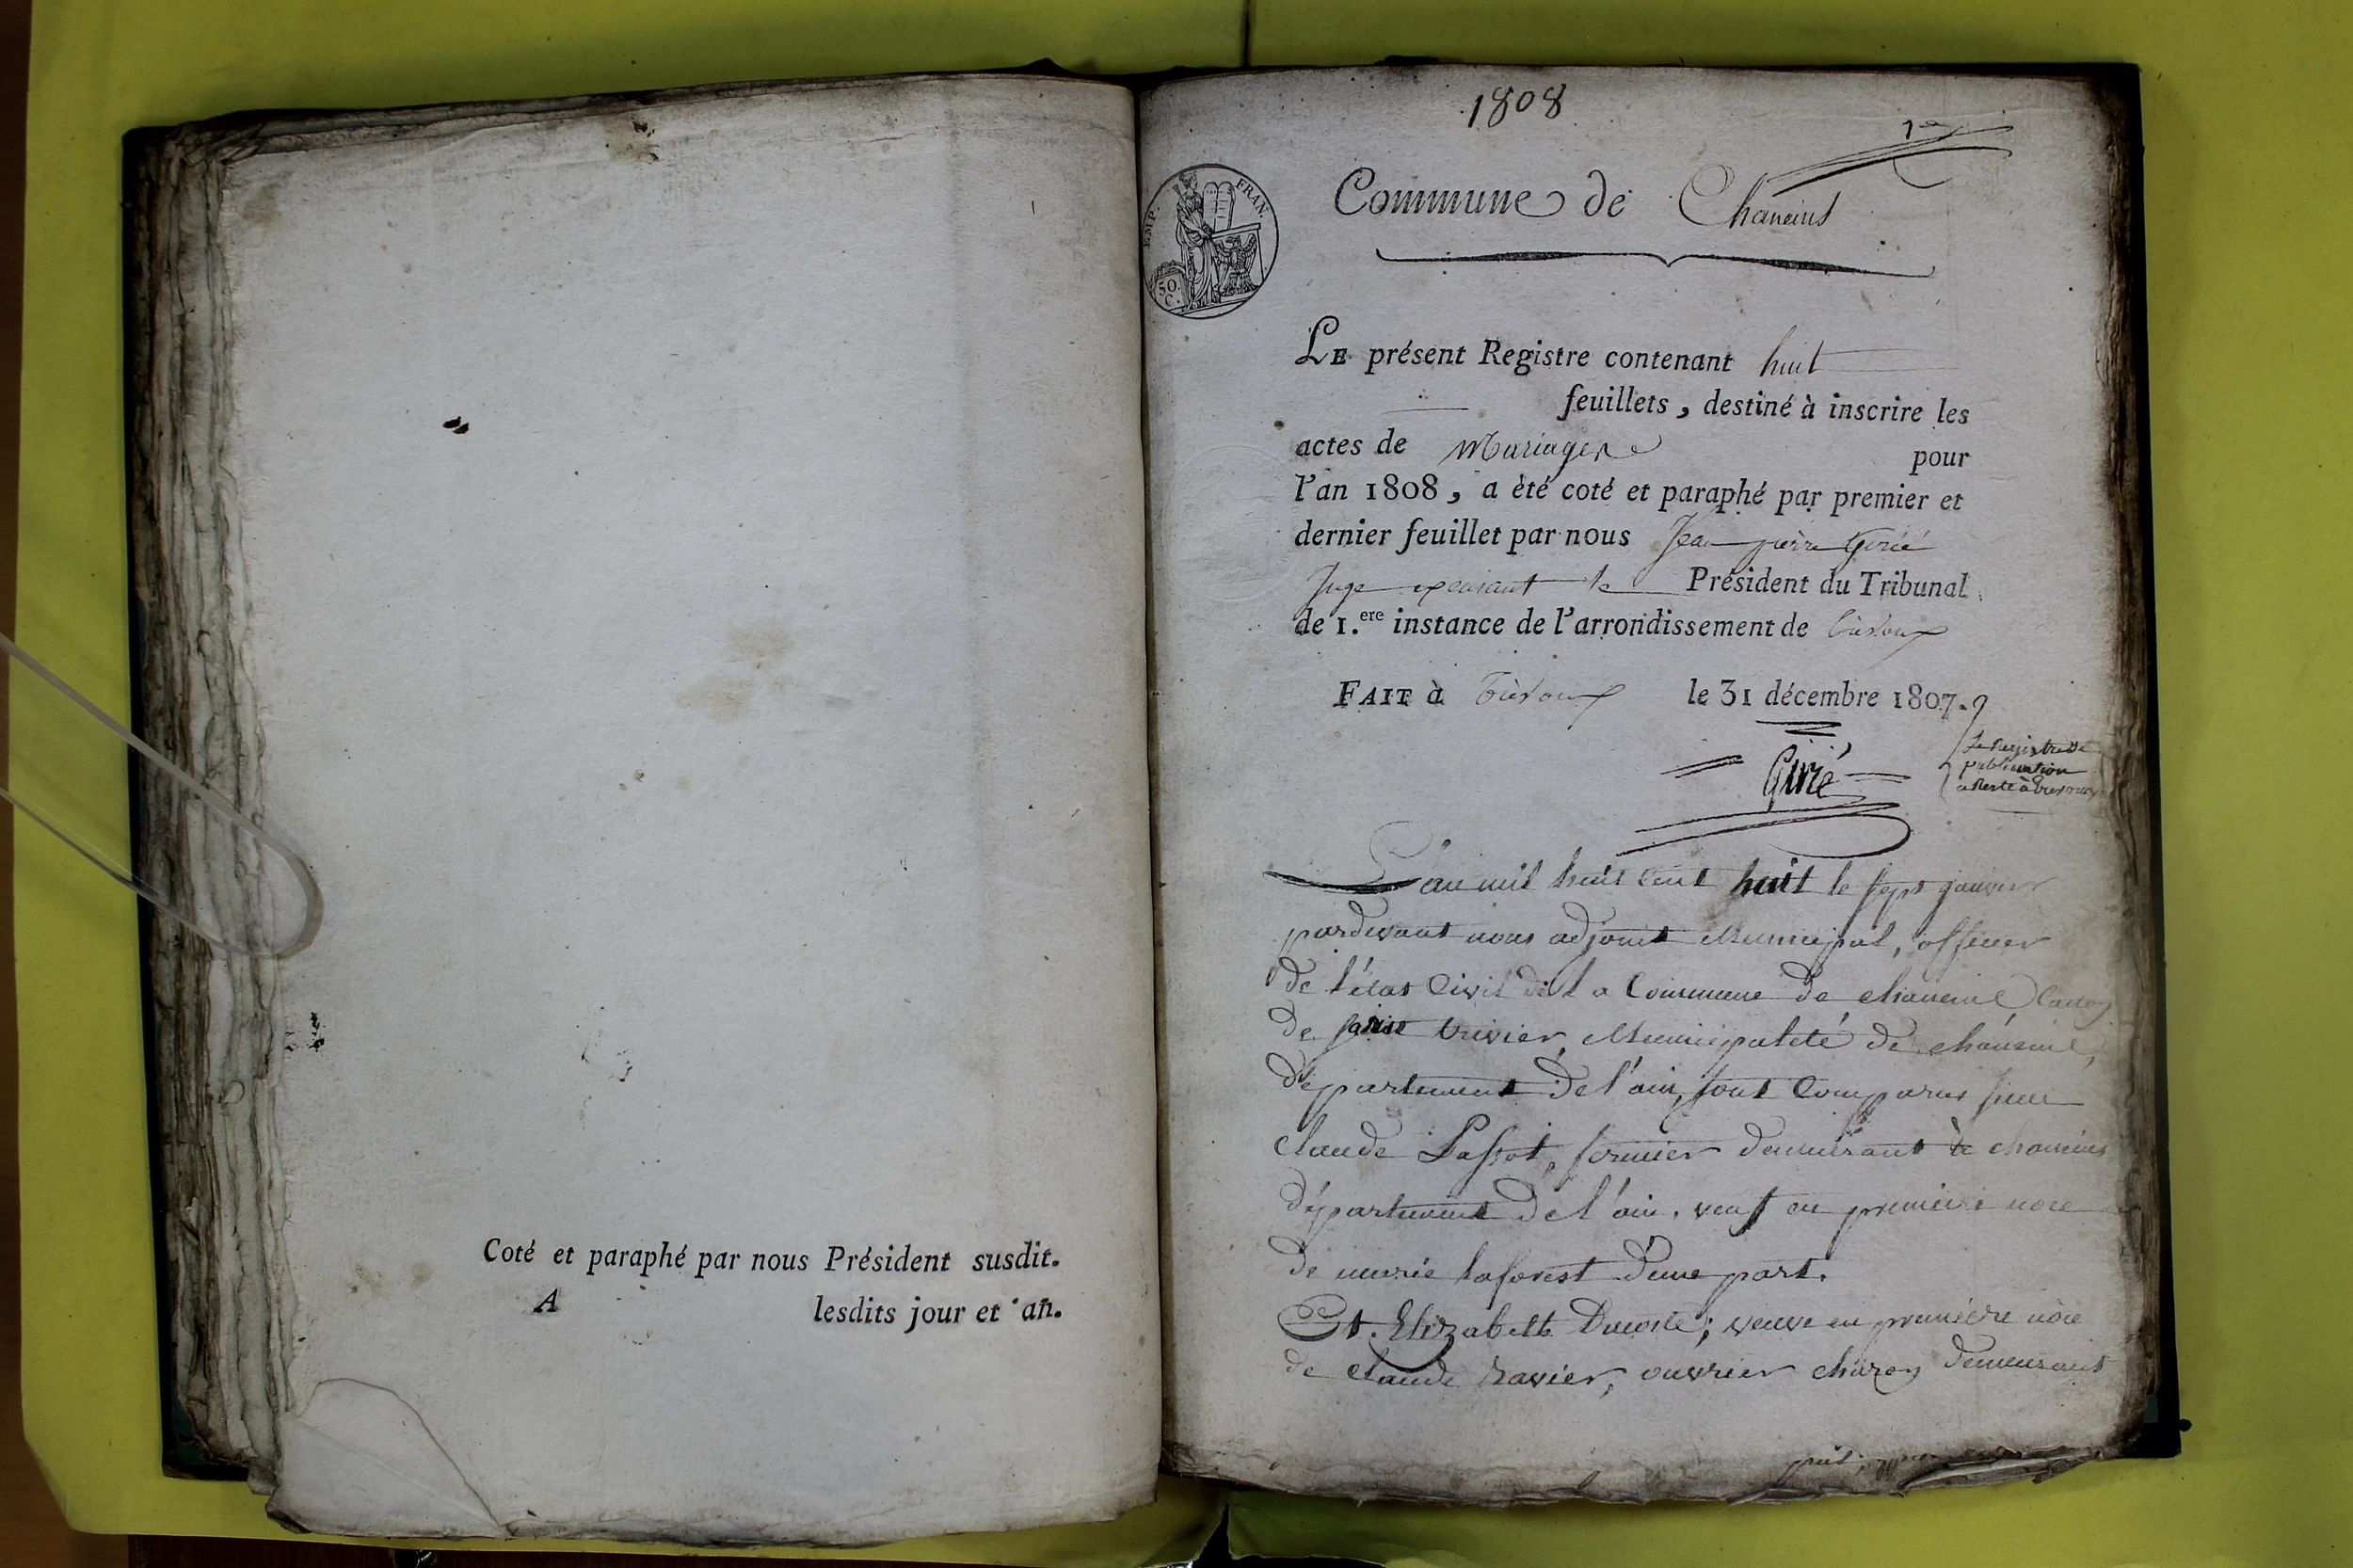 Coté et paraphé par nous Président susdit.
A lesdits jour et an.
1808
1er
EMP. FRAN.
50. C.
Commune de Chaneins
LE présent Registre contenant huit
feuillets, destiné à inscrire les
actes de Mariages pour
l'an 1808, a èté coté et paraphé par premier et
dernier feuillet par nous Jean pierre Girié
Juge exerçant le Président du Tribunal
de 1.ere instance de l'arrondissement de Trévoux
FAIT à Trévoux le 31 décembre 1807.
Girié
Le Registre de
publication
a Resté à trevoux
L'an mil huit cent huit le sept janvier
pardevant nous adjoint Municipal, officier
de l'état Civil de la Commune de chaneins Canton
de saint trivier, Municipaleté de chaneins,
département de l'ain, sont Comparus sieur
claude Passot, fermier demeurant à chaneins
département de l'ain, veuf en premiere noce
de marie laforest d'une part.
Et Elizabeth Ducoste; veuve en première noce
de claude Ravier, ouvrier charon demeurant